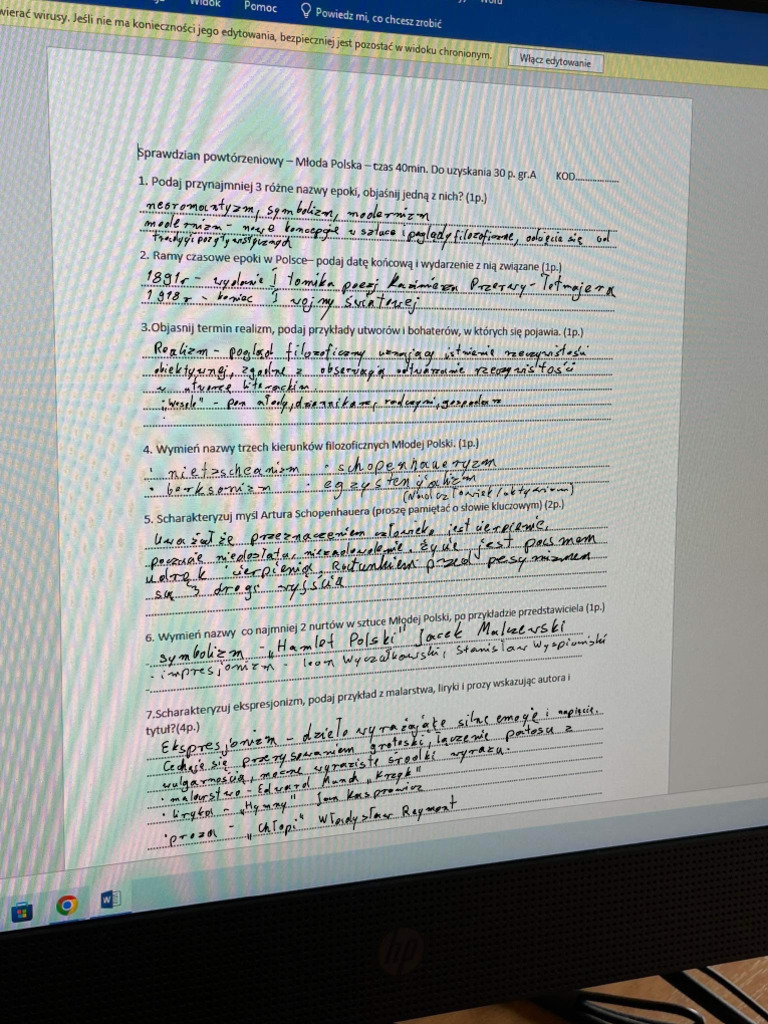 Widok Pomoc Powiedz mi, co chcesz zrobić
wierać wirusy. Jeśli nie ma konieczności jego edytowania, bezpieczniej jest pozostać w widoku chronionym. Włącz edytowanie
Sprawdzian powtórzeniowy – Młoda Polska – czas 40min. Do uzyskania 30 p. gr.A KOD
1. Podaj przynajmniej 3 różne nazwy epoki, objaśnij jedną z nich? (1p.)
neoromantyzm, symbolizm, modernizm
modernizm - nowe koncepcje w sztuce i poglądy filozoficzne, odcięcie się od
tradycji pozytywistycznych
2. Ramy czasowe epoki w Polsce– podaj datę końcową i wydarzenie z nią związane (1p.)
1891r - wydanie I tomika poezj Kazimierza Przerwy-Tetmajera
1918r - koniec I wojny światowej
3.Objasnij termin realizm, podaj przykłady utworów i bohaterów, w których się pojawia. (1p.)
Realizm - pogląd filozoficzny uznający istnienie rzeczywistości
obiektywnej, zgodne z obserwacją odtwarzanie rzeczywistości
w utworze literackim.
"Wesele" - pan młody, dziennikarz, radczyni, gospodarz
4. Wymień nazwy trzech kierunków filozoficznych Młodej Polski. (1p.)
· nietzscheanizm · schopenhaueryzm
· berksonizm · egzystencjalizm
5. Scharakteryzuj myśl Artura Schopenhauera (proszę pamiętać o słowie kluczowym) (2p.)
Uważał że przeznaczeniem człowieka jest cierpienie,
poczucie niedostatku, niezadowolenie. Życie jest pasmem
udręk i cierpienia, Ratunkiem przed pesymizmem
są 3 drogi wyjścia
6. Wymień nazwy co najmniej 2 nurtów w sztuce Młodej Polski, po przykładzie przedstawiciela (1p.)
· symbolizm - "Hamlet Polski" Jacek Malczewski
· impresjonizm - Leon Wyczałkowski, Stanisław Wyspiański
7.Scharakteryzuj ekspresjonizm, podaj przykład z malarstwa, liryki i prozy wskazując autora i
tytuł?(4p.)
Ekspresjonizm - dzieło wyrażające silne emocje i napięcie.
Cechuje się przerysowaniem groteski, łączenie patosu z
wulgarnością, mocne wyraziste środki wyrazu.
· malarstwo - Edward Munch "Krzyk"
· liryka - "Hymny" Jan Kasprowicz
· proza - "Chłopi" Władysław Reymont
hp